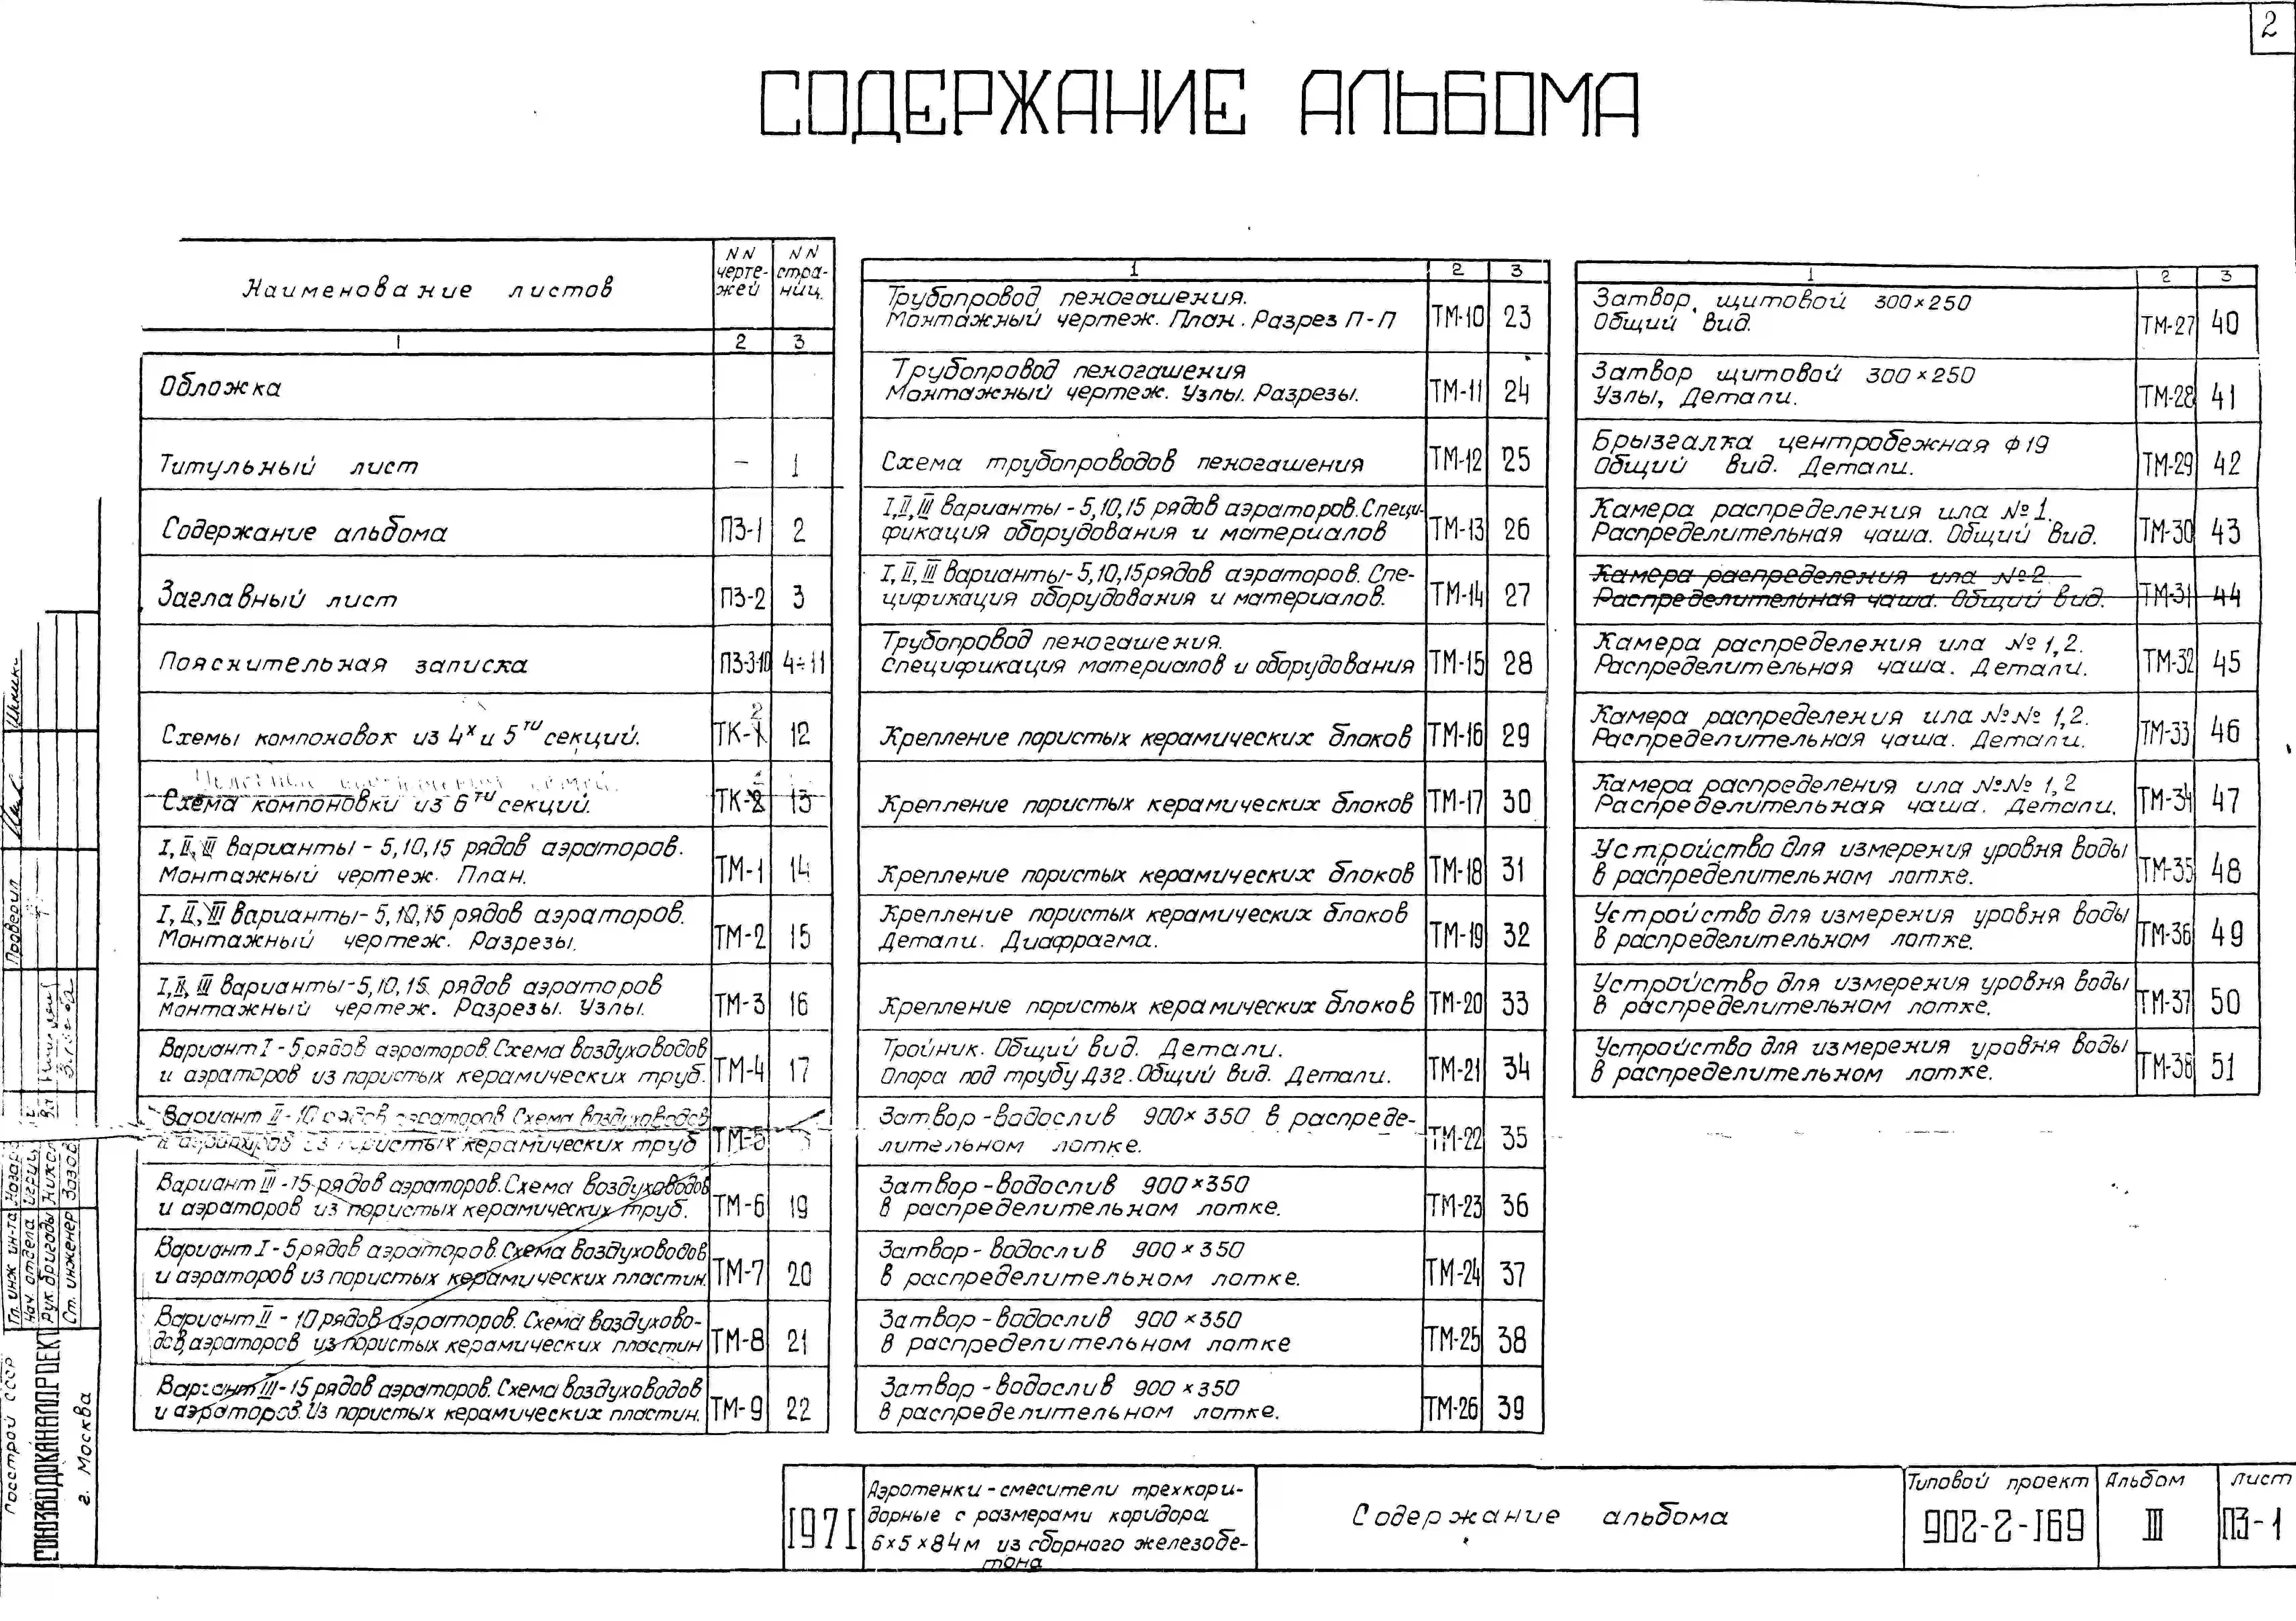 2
СОДЕРЖАНИЕ АЛЬБОМА
Наименование листов
NN чертежей
NN страниц.
1 2 3
Обложка
Титульный лист — 1
Содержание альбома ПЗ-1 2
Заглавный лист ПЗ-2 3
Пояснительная записка ПЗ-3-10 4÷11
Схемы компоновок из 4х и 5ти секций. ТК-1 2 12
Схема компоновки из 6ти секций. ТК-2 13
I, II, III варианты - 5,10,15 рядов аэраторов.
Монтажный чертеж. План. ТМ-1 14
I, II, III варианты - 5,10,15 рядов аэраторов.
Монтажный чертеж. Разрезы. ТМ-2 15
I, II, III варианты - 5,10,15 рядов аэраторов
Монтажный чертеж. Разрезы. Узлы. ТМ-3 16
Вариант I - 5 рядов аэраторов. Схема воздуховодов
и аэраторов из пористых керамических труб. ТМ-4 17
Вариант II - 10 рядов аэраторов Схема воздуховодов
и аэраторов из пористых керамических труб ТМ-5
Вариант III - 15 рядов аэраторов. Схема воздуховодов
и аэраторов из пористых керамических труб. ТМ-6 19
Вариант I - 5 рядов аэраторов. Схема воздуховодов
и аэраторов из пористых керамических пластин. ТМ-7 20
Вариант II - 10 рядов аэраторов. Схема воздухово-
дов, аэраторов из пористых керамических пластин ТМ-8 21
Вариант III - 15 рядов аэраторов. Схема воздуховодов
и аэраторов. Из пористых керамических пластин. ТМ-9 22
1 2 3
Трубопровод пеногашения.
Монтажный чертеж. План. Разрез П-П ТМ-10 23
Трубопровод пеногашения
Монтажный чертеж. Узлы. Разрезы. ТМ-11 24
Схема трубопроводов пеногашения ТМ-12 25
I, II, III варианты - 5,10,15 рядов аэраторов. Специ-
фикация оборудования и материалов ТМ-13 26
I, II, III варианты - 5,10,15 рядов аэраторов. Спе-
цификация оборудования и материалов. ТМ-14 27
Трубопровод пеногашения.
Спецификация материалов и оборудования ТМ-15 28
Крепление пористых керамических блоков ТМ-16 29
Крепление пористых керамических блоков ТМ-17 30
Крепление пористых керамических блоков ТМ-18 31
Крепление пористых керамических блоков
Детали. Диафрагма. ТМ-19 32
Крепление пористых керамических блоков ТМ-20 33
Тройник. Общий вид. Детали.
Опора под трубу Д32. Общий вид. Детали. ТМ-21 34
Затвор - водослив 900×350 в распреде-
лительном лотке. ТМ-22 35
Затвор - водослив 900×350
в распределительном лотке. ТМ-23 36
Затвор - водослив 900×350
в распределительном лотке. ТМ-24 37
Затвор - водослив 900×350
в распределительном лотке ТМ-25 38
Затвор - водослив 900×350
в распределительном лотке. ТМ-26 39
1 2 3
Затвор щитовой 300×250
Общий вид. ТМ-27 40
Затвор щитовой 300×250
Узлы, Детали. ТМ-28 41
Брызгалка центробежная Ф19
Общий вид. Детали. ТМ-29 42
Камера распределения ила №1.
Распределительная чаша. Общий вид. ТМ-30 43
Камера распределения ила №2.
Распределительная чаша. Общий вид. ТМ-31 44
Камера распределения ила №1,2.
Распределительная чаша. Детали. ТМ-32 45
Камера распределения ила №№ 1,2.
Распределительная чаша. Детали. ТМ-33 46
Камера распределения ила №№ 1,2
Распределительная чаша. Детали. ТМ-34 47
Устройство для измерения уровня воды
в распределительном лотке. ТМ-35 48
Устройство для измерения уровня воды
в распределительном лотке. ТМ-36 49
Устройство для измерения уровня воды
в распределительном лотке. ТМ-37 50
Устройство для измерения уровня воды
в распределительном лотке. ТМ-38 51
Проверил
Гл. инж ин-та
Нач. отдела
Рук. бригады
Ст. инженер
Госстрой СССР
СОЮЗВОДОКАНАЛПРОЕКТ
г. Москва
1971
Аэротенки - смесители трехкори-
дорные с размерами коридора
6×5×84м из сборного железобе-
тона
Содержание альбома
Типовой проект
902-2-169
Альбом
III
Лист
ПЗ-1